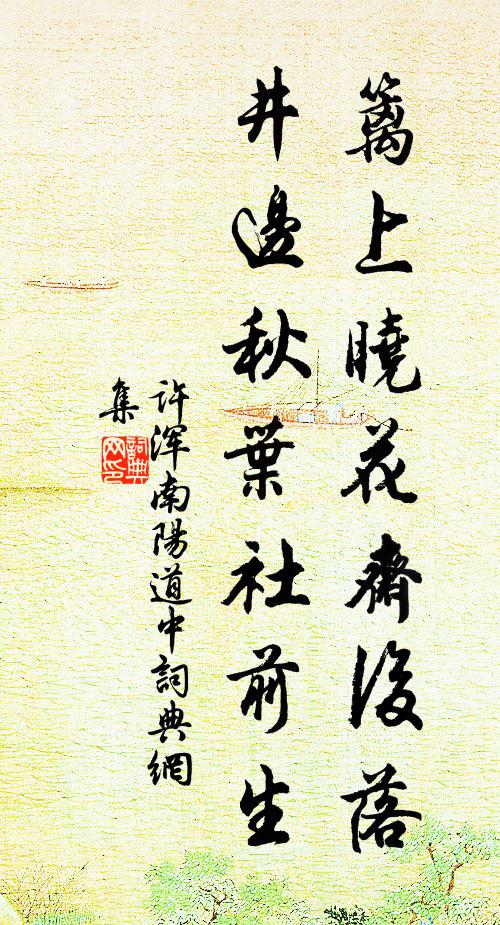 篱上曉花齋後落
井邊秋葉社前生
许浑南陽道中詞典網
集
詞典
网印